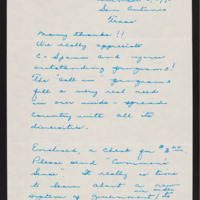 San Antonio
Texas
Many thanks!!
We really appreciate
C-Span and your
outstanding programs!
The "call in" programs
fill a very real need
in our wide-spread
country with all its
diversities.
Enclosed, a check for $3.00.
Please send "Common
Sense". It really is time
to learn about a new
system of government, to